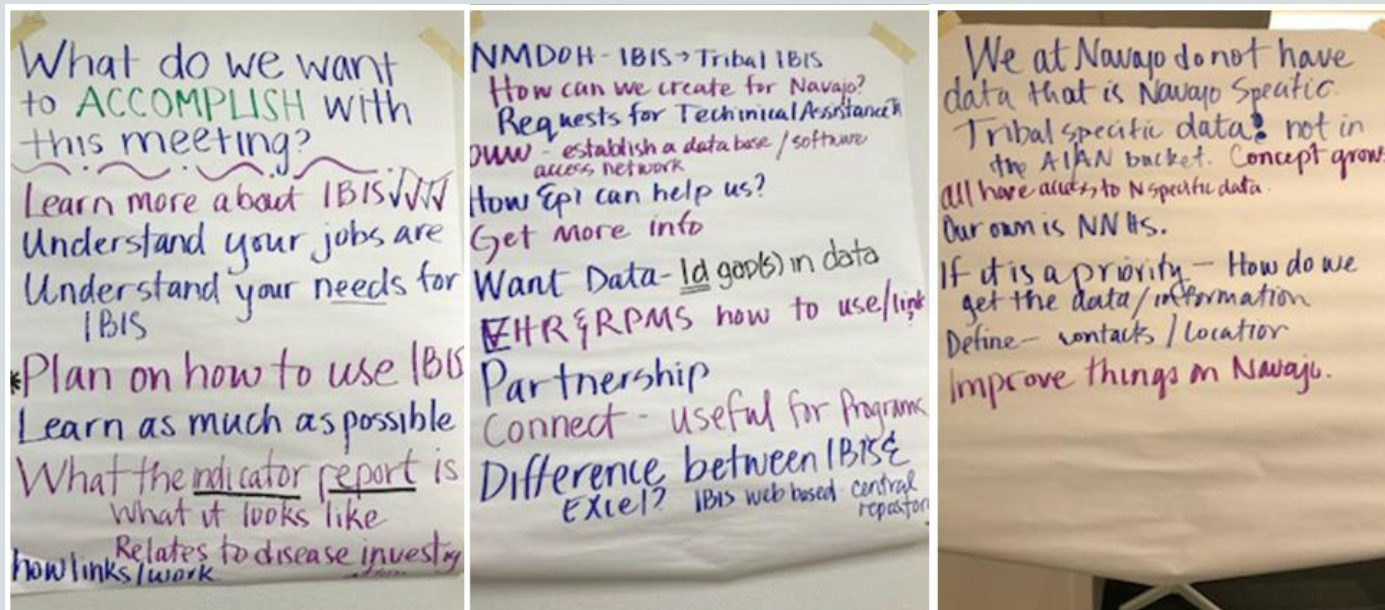 What do we want
to ACCOMPLISH with
this meeting?
Learn more about IBIS√√√√
Understand your jobs are
Understand your needs for
IBIS
*Plan on how to use IBIS
Learn as much as possible
What the indicator report is
What it looks like
Relates to disease investig
how links/work
NMDOH - IBIS → Tribal IBIS
How can we create for Navajo?
Requests for Techinical Assistance
- establish a data base / software
access network
How Epi can help us?
Get more info
Want Data - Id gap(s) in data
EHR & RPMS how to use/link
Partnership
Connect - useful for Programs
Difference between IBIS &
EXCel? IBIS web based - central
repositor
We at Navajo do not have
data that is Navajo Specific.
Tribal specific data! not in
the AIAN bucket. Concept grow
all have access to N specific data.
Our own is NNHS.
If it is a priority - How do we
get the data/information
Define - contacts / Location
Improve things on Navajo.